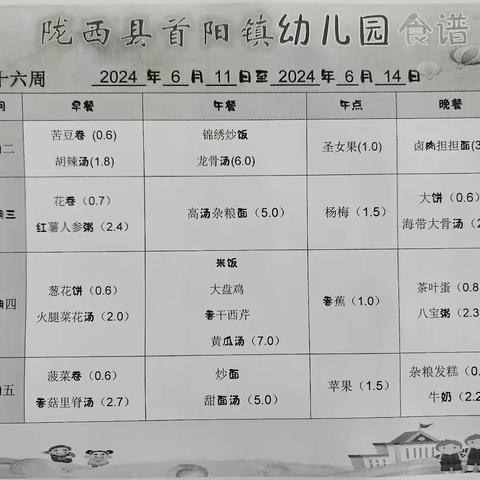 陇西县首阳镇幼儿园食谱
十六周 2024 年 6 月 11 日至 2024 年 6 月 14 日
间 早餐 午餐 午点 晚餐
二 苦豆卷 (0.6) 锦绣炒饭 圣女果(1.0) 卤肉担担面(3
胡辣汤(1.8) 龙骨汤(6.0)
三 花卷（0.7） 高汤杂粮面（5.0） 杨梅（1.5） 大饼（0.6）
红薯人参粥（2.4） 海带大骨汤（2
四 葱花饼（0.6） 米饭 香蕉（1.0） 茶叶蛋（0.8
火腿菜花汤（2.0） 大盘鸡 八宝粥（2.3
香干西芹
黄瓜汤（7.0）
五 菠菜卷（0.6） 炒面 苹果（1.5） 杂粮发糕（0.
香菇里脊汤（2.7） 甜面汤（5.0） 牛奶（2.2